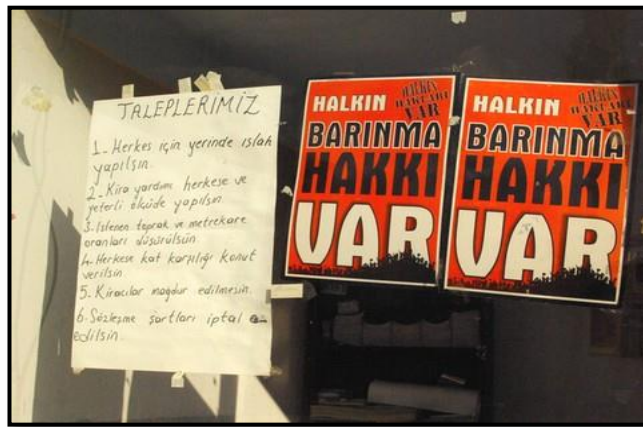 TALEPLERİMİZ
1- Herkes için yerinde ıslah
yapılsın.
2- Kira yardımı herkese ve
yeterli ölçüde yapılsın.
3- İstenen toprak ve metrekare
oranları düşürülsün
4- Herkese kat karşılığı konut
verilsin
5. Kiracılar mağdur edilmesin.
6- Sözleşme şartları iptal
edilsin.
HALKIN
HALKIN
HAKLARI
VAR
BARINMA
HAKKI
VAR
HALKIN
HALKIN
HAKLARI
VAR
BARINMA
HAKKI
VAR